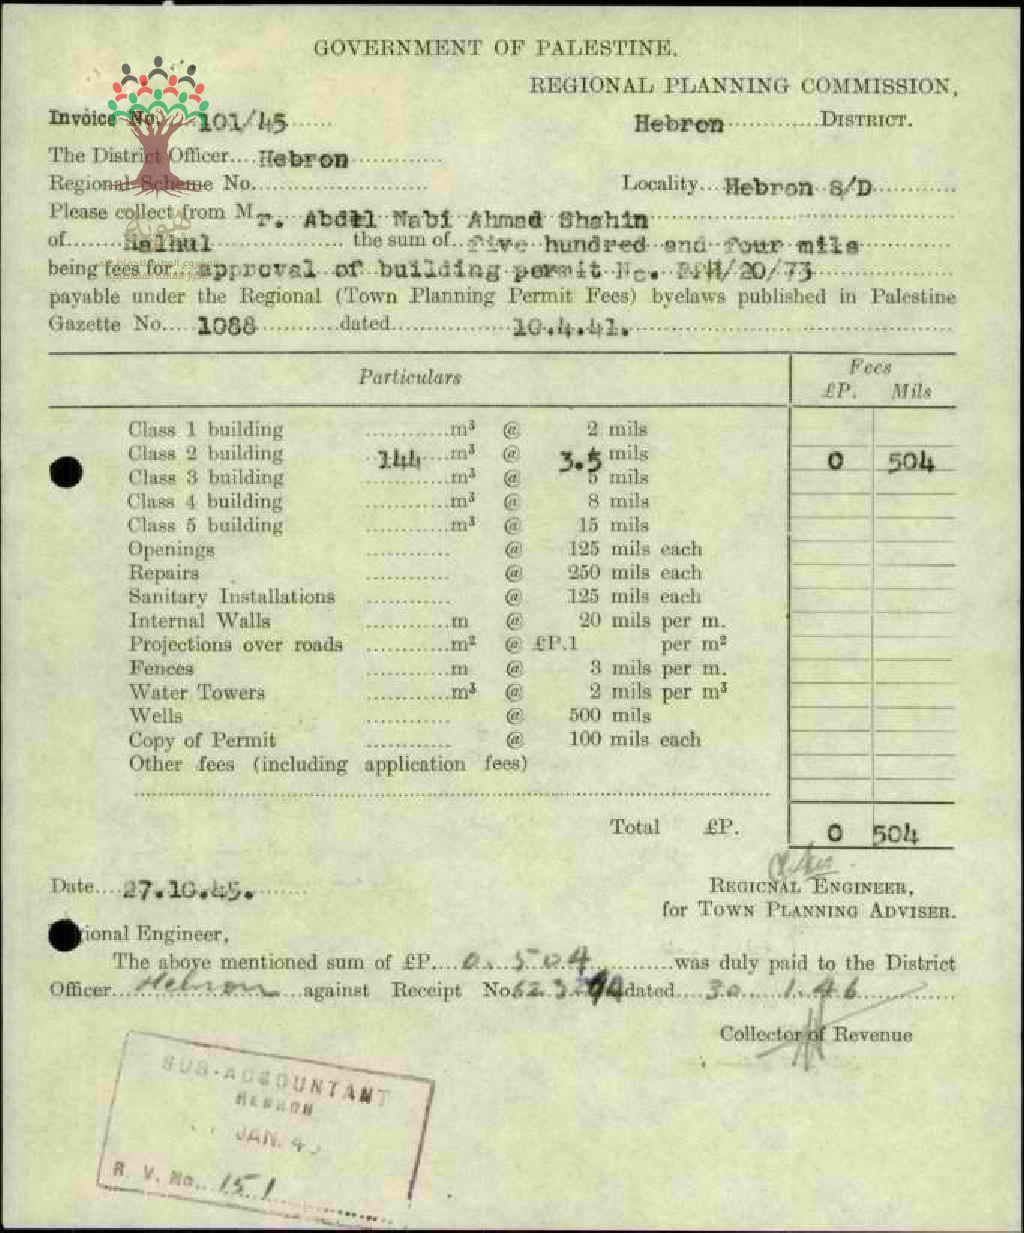 GOVERNMENT OF PALESTINE.
REGIONAL PLANNING COMMISSION,
Invoice No. 101/45 Hebron DISTRICT.
The District Officer Hebron
Regional Scheme No. Locality Hebron S/D
Please collect from Mr. Abdel Nabi Ahmad Shahin
of Halhul the sum of five hundred and four mils
being fees for approval of building permit No. /20/73
payable under the Regional (Town Planning Permit Fees) byelaws published in Palestine
Gazette No. 1088 dated 10.4.41.
Particulars Fees
£P. Mils
Class 1 building m³ @ 2 mils
Class 2 building 144 m³ @ 3.5 mils 0 504
Class 3 building m³ @ 5 mils
Class 4 building m³ @ 8 mils
Class 5 building m³ @ 15 mils
Openings @ 125 mils each
Repairs @ 250 mils each
Sanitary Installations @ 125 mils each
Internal Walls m @ 20 mils per m.
Projections over roads m² @ £P.1 per m²
Fences m @ 3 mils per m.
Water Towers m³ @ 2 mils per m³
Wells @ 500 mils
Copy of Permit @ 100 mils each
Other fees (including application fees)
Total £P. 0 504
Date 27.10.45.
REGIONAL ENGINEER,
for TOWN PLANNING ADVISER.
ional Engineer,
The above mentioned sum of £P. 0.504 was duly paid to the District
Officer Hebron against Receipt No. dated 30.1.46
Collector of Revenue
SUB-ACCOUNTANT
HEBRON
JAN. 4
R. V. No. 151